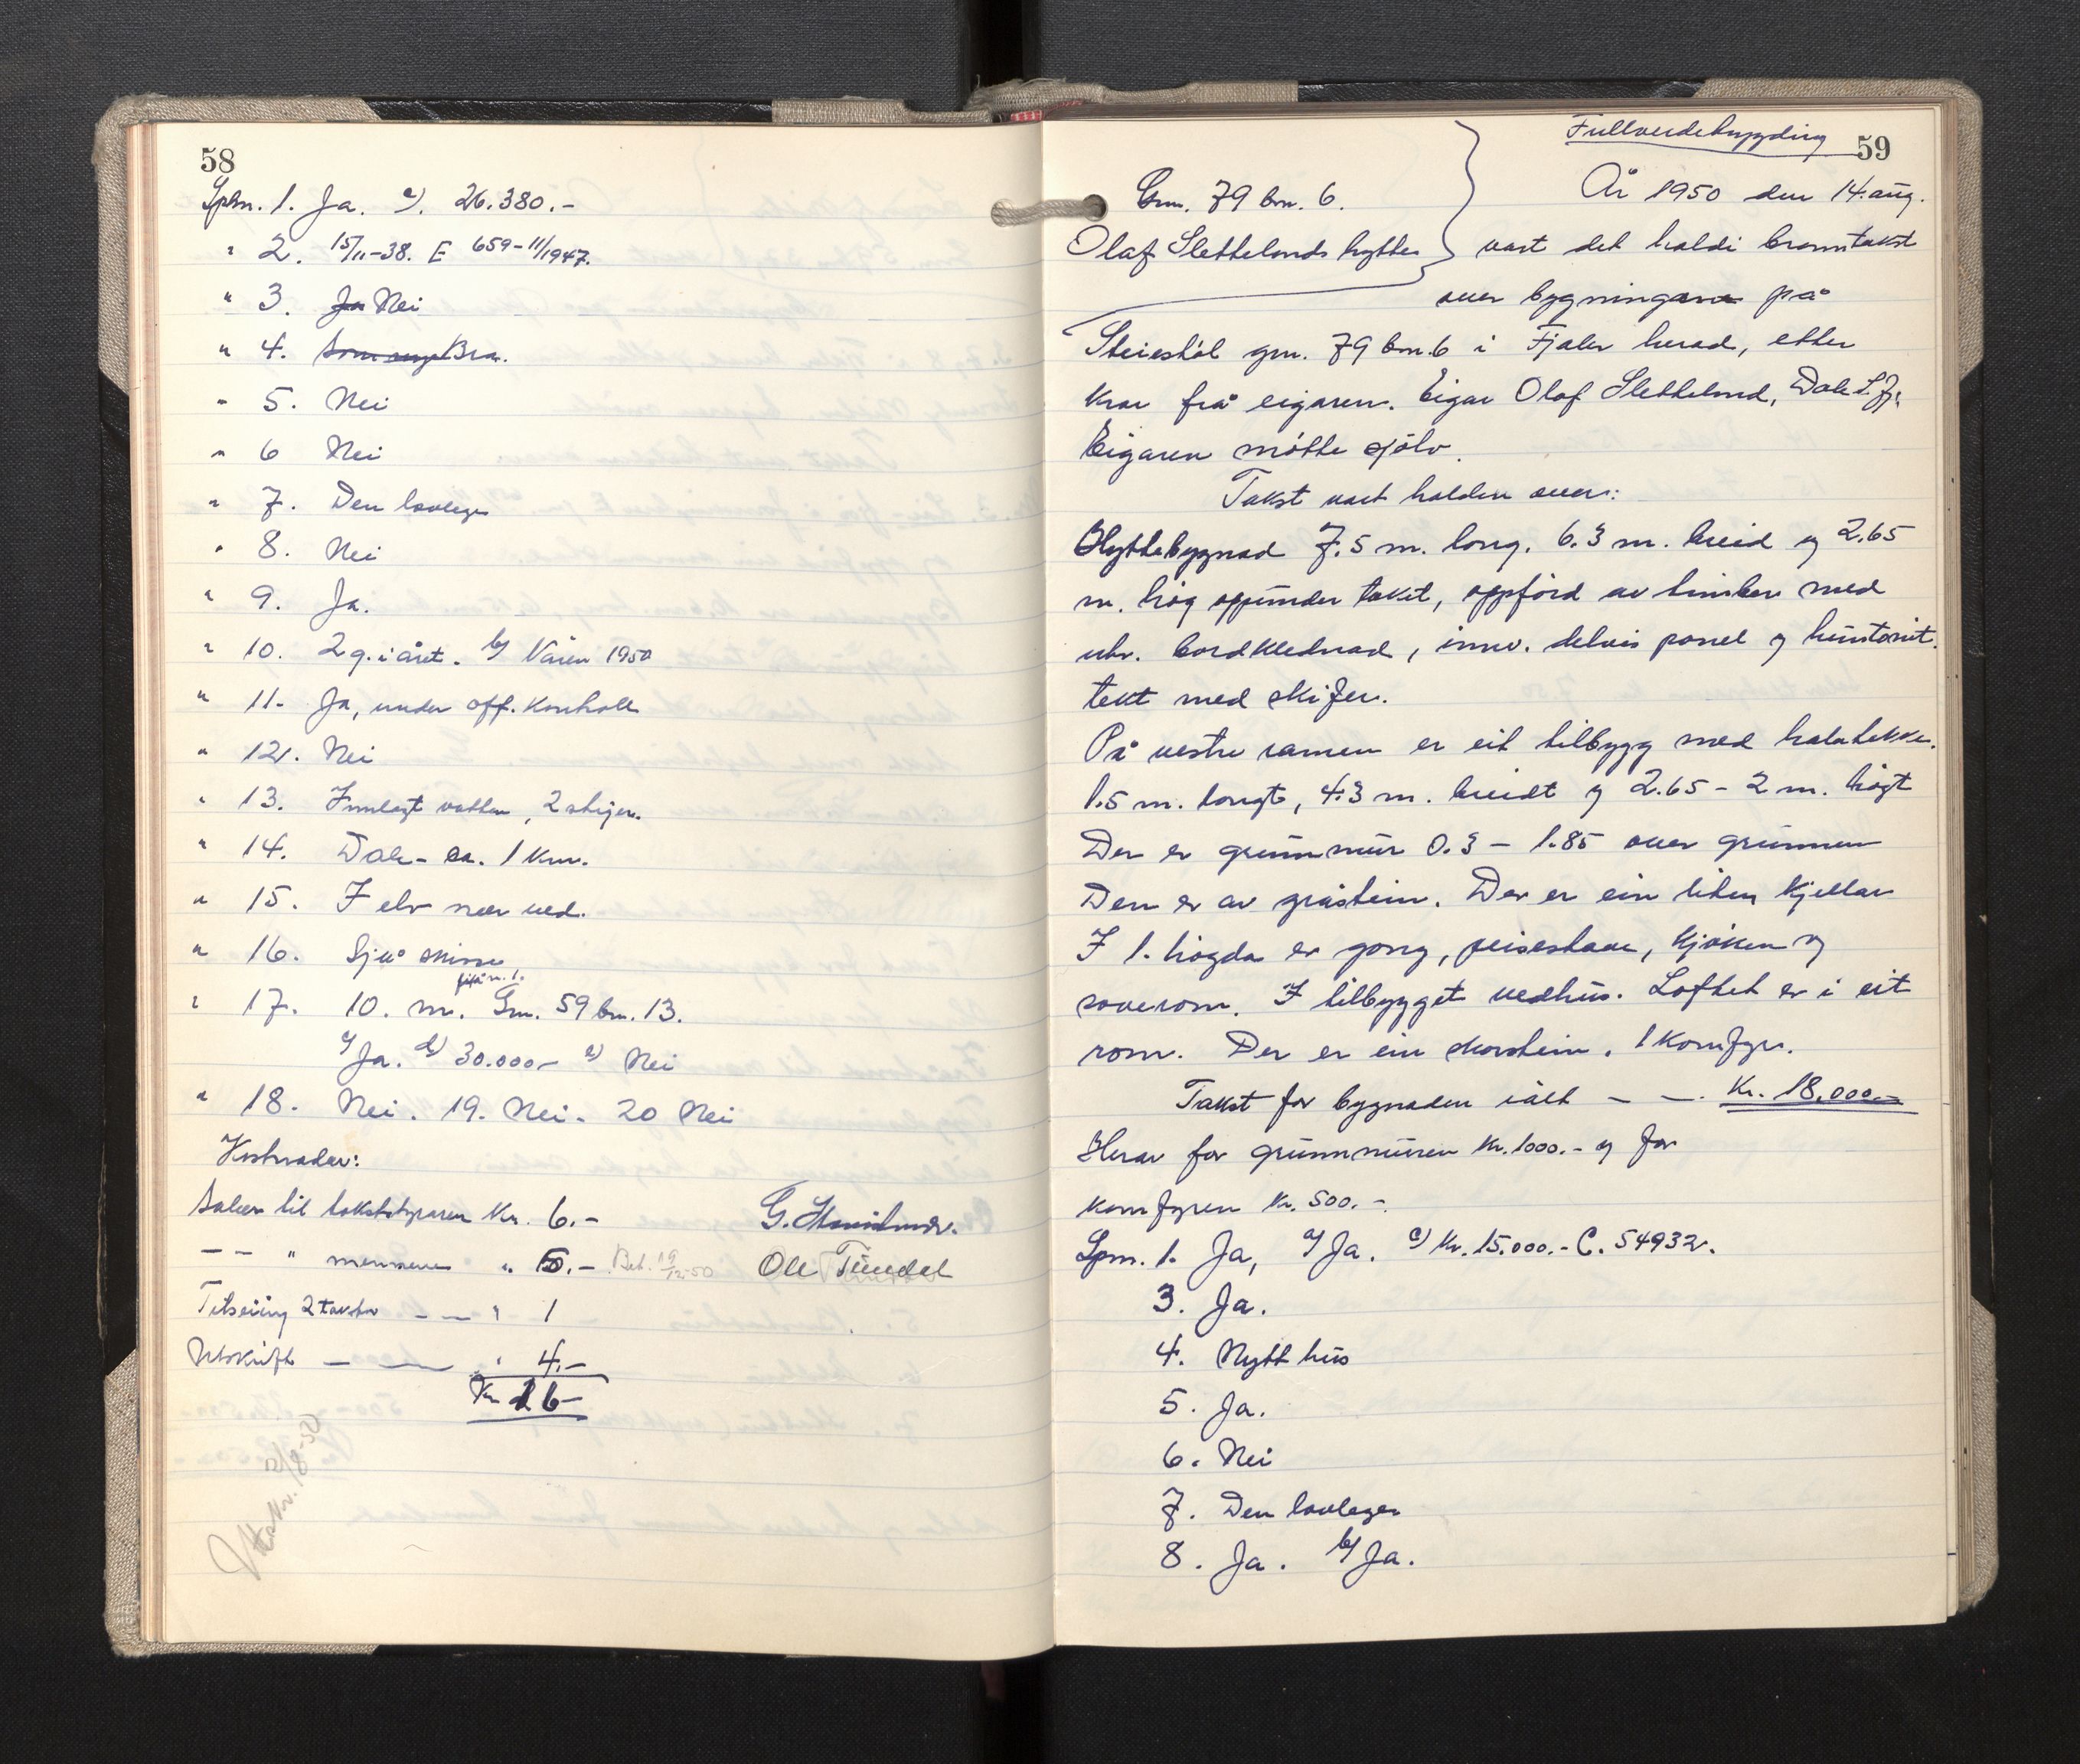 58
Spm. 1. Ja. c). 26.380.-
" 2. 15/11-38. E 659-11/1947.
" 3. Ja Nei
" 4. Som nye Bra.
" 5. Nei
" 6 Nei
" 7. Den lovlege
" 8. Nei
" 9. Ja.
" 10. 2 g. i året. b) Våren 1950
" 11. Ja, under off. kontroll
" 12. Nei
" 13. Innlagt vatten, 2 stiger.
" 14. Dale - ca. 1 km.
" 15. I elv nær ved.
" 16. Sjå skisse
frå nr. 1.
" 17. 10. m. Gnr. 59 bnr. 13.
a) Ja. b) 30.000.- c) Nei
" 18. Nei. 19. Nei. 20 Nei
Kostnader:
Salær til takststyraren Kr. 6.-
-- " mennene " 5.- Bet. 19/12-50
Tilseiing 2 takstm -- " 1
Utskrift -- " 4.-
Kr. 16-
G.
Ole Tundal
Utskr. /8-50
Fullverdebygding
59
Gnr. 79 bnr. 6.
Olaf Slettelands hytte
År 1950 den 14. aug.
vart det haldi branntakst
over bygningane på
Steiestøl gnr. 79 bnr. 6 i Fjaler herad, etter
krav frå eigaren. Eigar Olaf Slettelend, Dale S.Fj.
Eigaren møtte sjølv.
Takst vart halden over:
Hyttebygnad 7.5 m. lang. 6.3 m. breid og 2.65
m. høg oppunder taket, oppførd av timber med
utv. bordklednad, innv. delvis panel og huntonit.
tekt med skifer.
På vestre ramen er eit tilbygg med halvtekkje.
1.5 m. langt, 4.3 m. breidt og 2.65 - 2 m. høgt
Der er grunnmur 0.3 - 1.85 over grunnen
Den er av gråstein. Der er ein liten kjellar
I 1. høgda er gang, peisestove, kjøken og
soverom. I tilbygget vedhus. Loftet er i eit
rom. Der er ein skorstein. 1 komfyr.
Takst for bygnaden ialt - -. Kr. 18.000.-
Herav for grunnmuren kr. 1000.- og for
komfyren kr. 500.-.
Spm. 1. Ja, a) Ja. c) kr. 15.000.- C. 54932.
3. Ja.
4. Nytt hus
5. Ja.
6. Nei
7. Den lovlege
8. Ja. b) Ja.